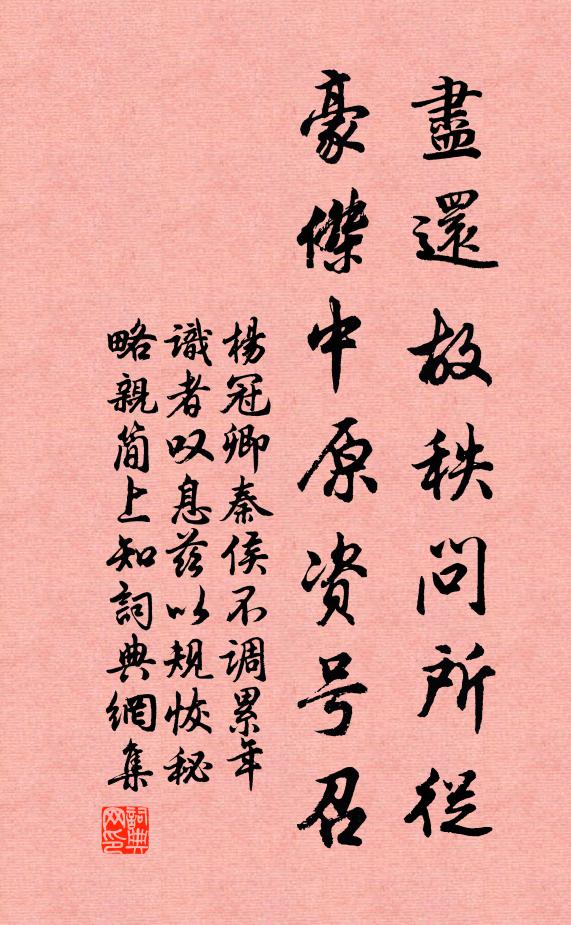 盡還故秩問所從
豪傑中原资号召
楊冠卿秦侯不调累年
識者叹息茲以规恢秘
略親简上知詞典網集
詞典网印